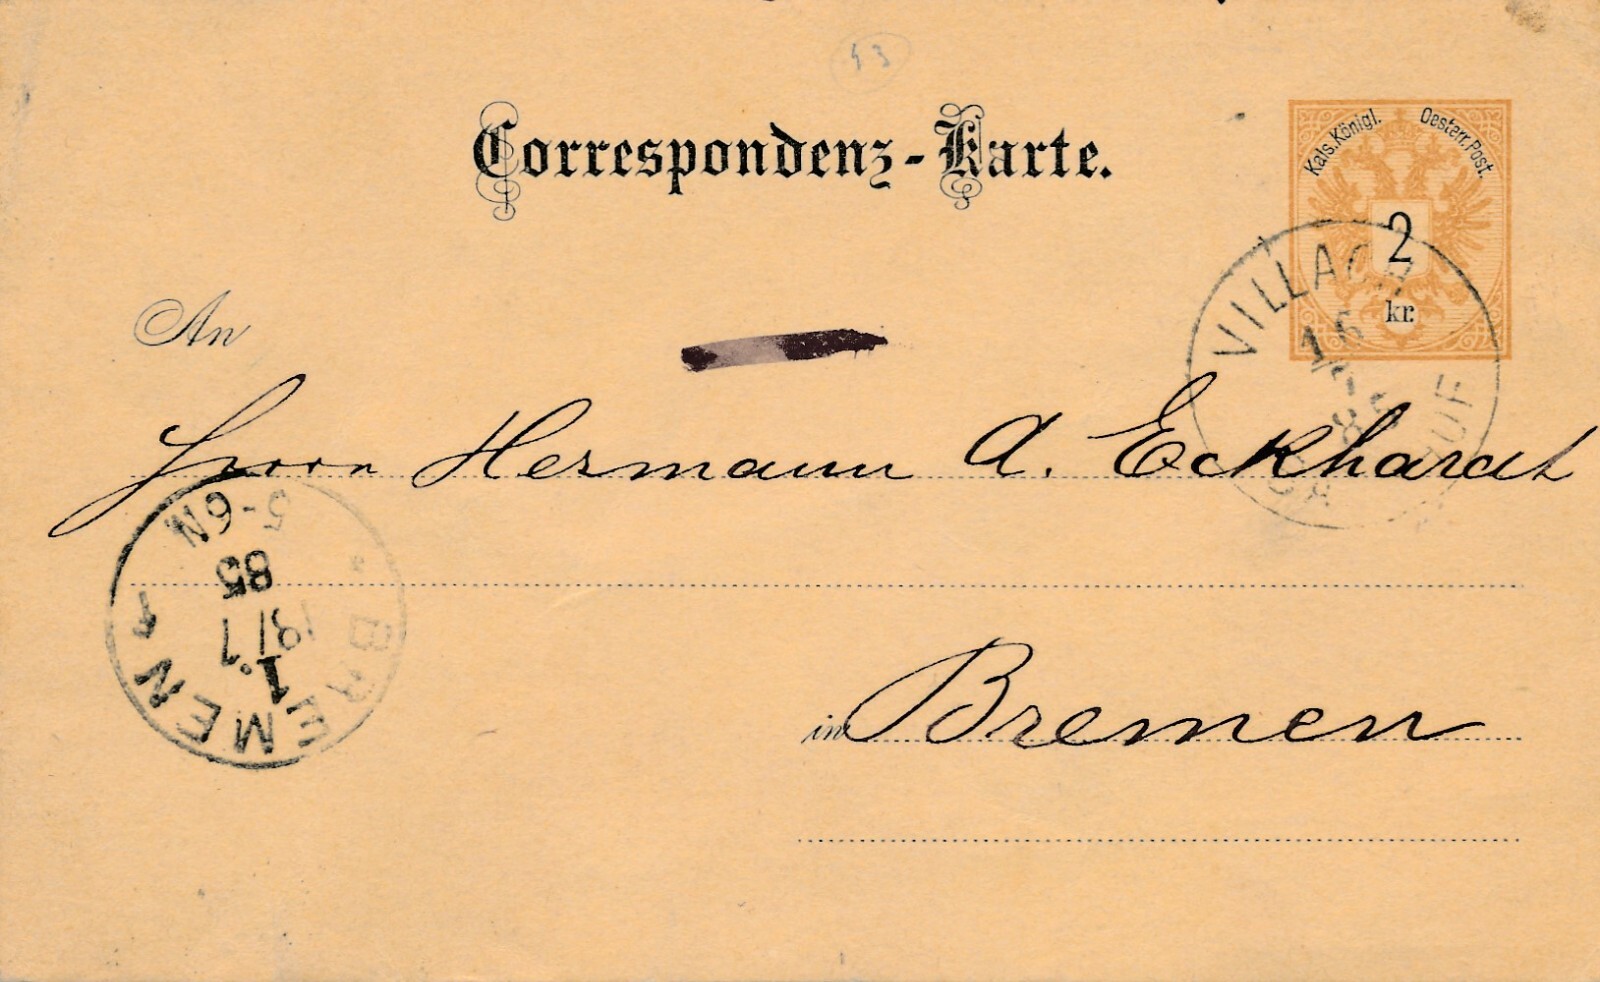 53
Correspondenz-Karte.
Kais. Königl. Oesterr. Post.
2
kr.
VILLACH
15
85
An
Herrn Hermann A. Eckhardt
5-6N
85
19/7
1.
BREMEN 1
in Bremen